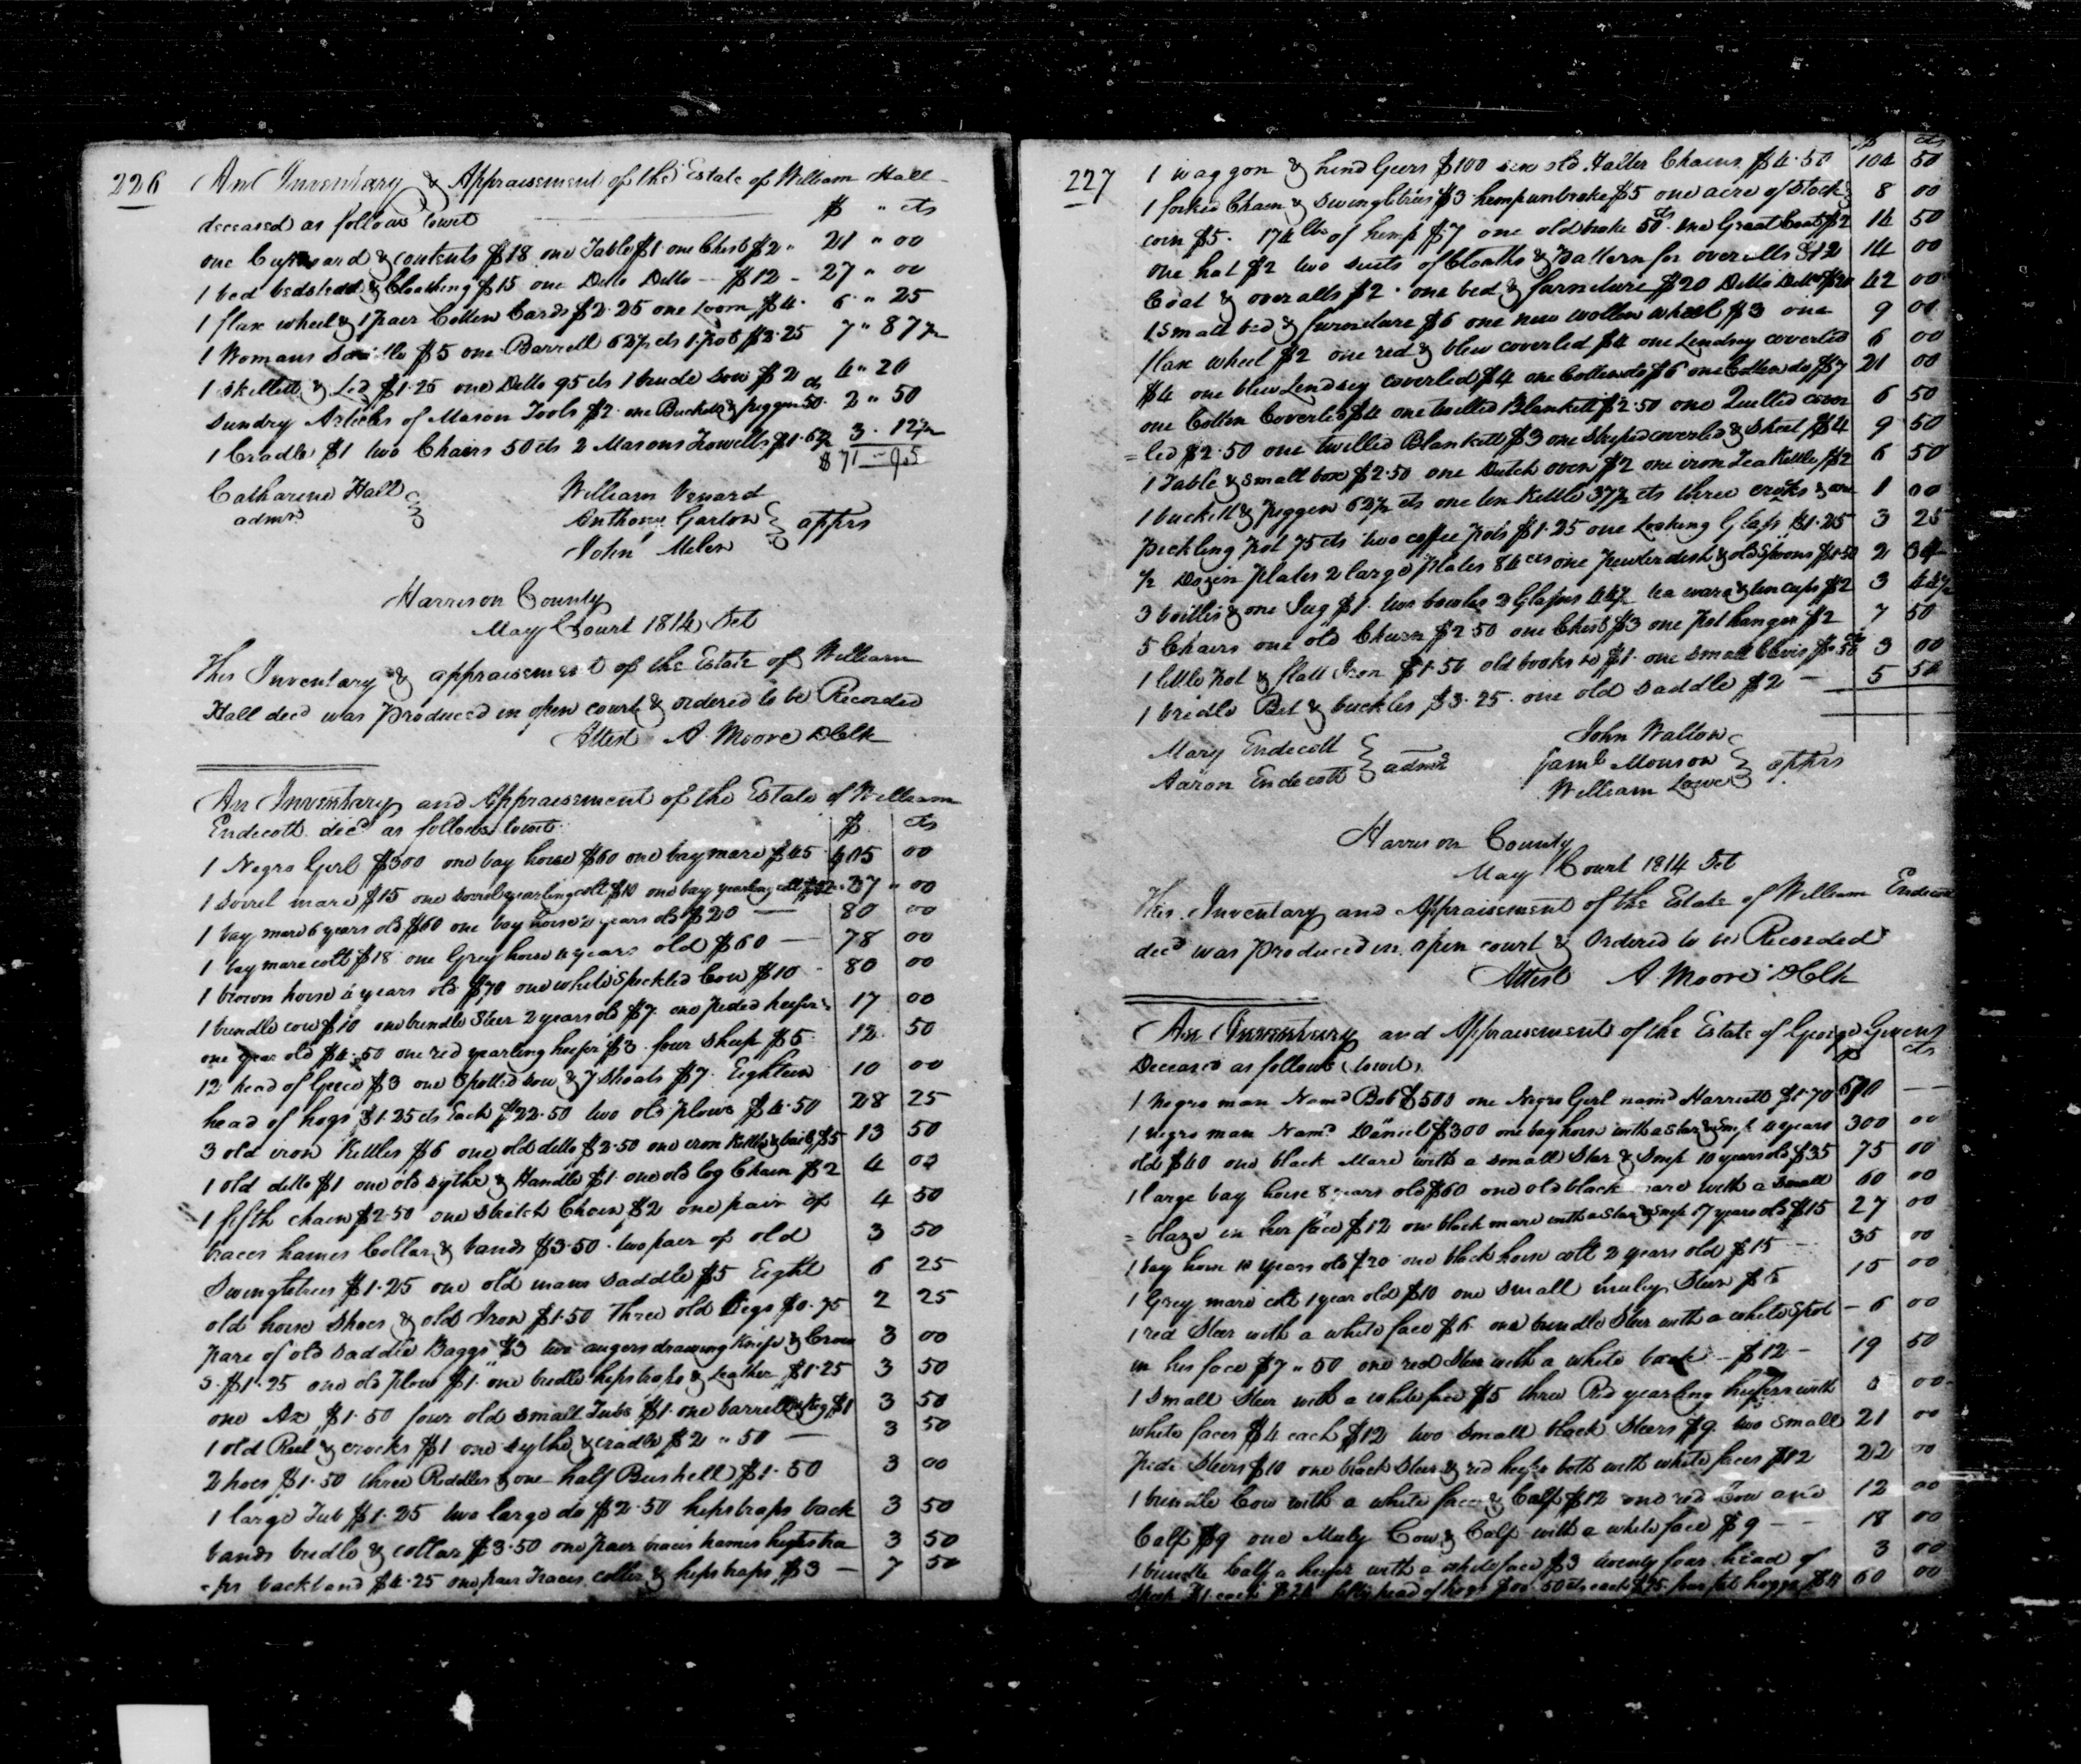 226
An Inventary & Appraisement of the Estate of William Hall
deceased as follows towit $ " cts
one Cupboard & contents $18 one Table $1 one Chest $2 " 21 " 00
1 bed bedstead & Cloathing $15 one Ditto Ditto — $12 - 27 " 00
1 flax wheel & 1 pair Cotten Cards $2.25 one Loom $4. 6 " 25
1 Womans Saddle $5 one Barrell 62½ cts 1 pot $2.25 7 " 87½
1 Skillett & Led $1.25 one Ditto 95 cts 1 brude Sow $2 4 " 20
Sundry Articles of Mason Tools $2 one Buckett & piggen 50 cts 2 " 50
1 Cradle $1 two Chairs 50 cts 2 Masons Trowells $1.62½ 3 . 12½
$71 - 95
Catharine Hall
admrx
William Venard
Anthony Garton
John Miler
apprs
Harrison County
May Court 1814 Sct
This Inventary & appraisement of the Estate of William
Hall decd was produced in open court & ordered to be Recorded
Attest A. Moore DClk
An Inventary and Appraisement of the Estate of William
Endecott decd as follows towit $ cts
1 Negro Girl $300 one bay horse $60 one bay mare $45 405 00
1 Sorrel mare $15 one sorrel yearling colt $10 one bay yearling colt $12 - 37 " 00
1 bay mare 6 years old $60 one bay horse 2 years old $20 — 80 00
1 bay mare colt $18 one Grey horse 4 years old $60 — 78 00
1 brown horse 6 years old $70 one white Speckled Cow $10 - 80 00
1 brindle cow $10 one brindle Steer 2 years old $7 one pided heifer 17 00
one year old $4.50 one red yearling heifer $3 four Sheep $5 12 50
12 head of Geece $3 one Spotted sow & 7 Shoats $7 Eighteen 10 00
head of hogs $1.25 cts Each $22.50 two old plows $4.50 28 25
3 old iron Kettles $6 one old ditto $2.50 one iron Kettle & bail $5 13 50
1 old ditto $1 one old sythe & Handle $1 one old log Chain $2 4 00
1 fifth chain $2.50 one stretch Chain $2 one pair of 4 50
traces hames Collar & bands $3.50 two pair of old 3 50
Swingletrees $1.25 one old mans saddle $5 Eight 6 25
old horse Shoes & old Iron $1.50 Three old Kegs $0.75 2 25
pare of old saddle Baggs $3 two augers drawing Knife & Crow 3 00
s. $1.25 one old plow $1 one bridle hipstraps & Leather $1.25 3 50
one Ax $1.50 four old small Tubs $1 one barrell & Keg $1 3 50
1 old Reel & crocks $1 one Sythe & cradle $2 " 50 — 3 50
2 hoes $1.50 three Riddles & one half Bushell $1.50 3 00
1 large Tub $1.25 two large do $2.50 hipstraps back 3 50
bands bridle & collar $3.50 one pair traces hames hipstra 3 50
= ps backband $4.25 one pair Traces collar & hipstraps $3 — 7 50
227
$ cts
1 waggon & hind Geers $100 six old Halter Chains $4.50 104 50
1 forked Chain & Swingletrees $3 hemp unbroke $5 one acre of Stock 8 00
corn $5. 174 lbs of hemp $7 one old brake 50 cts one Great Coat $2 14 50
one hat $2 two Suits of Cloaths & pattern for overalls $12 14 00
Coat & overalls $2 . one bed & furniture $20 Ditto Ditto $20 42 00
1 small bed & furniture $6 one new wollen wheel $3 one 9 00
flax wheel $2 one red & blew coverled $4 one Lendsey coverled 6 00
$4 one blew Lendsey coverled $4 one Cotten do $6 one Cotten do $7 21 00
one Cotten Coverled $4 one twilled Blankett $2.50 one Quilted cover 6 50
= led $2.50 one twilled Blankett $3 one Striped coverled & Sheet $4 9 50
1 Table & small box $2.50 one Dutch oven $2 one iron Tea Kettle $2 6 50
1 buckett & piggen 62½ cts one tin Kettle 37½ cts three crocks & one 1 00
pickling pot 75 cts two coffee pots $1.25 one Looking Glass $1.25 3 25
½ Dozen plates 2 large plates 84 cts one pewter dish & old Spoons $1.50 2 34
3 bottles & one Jug $1. two bowles 2 Glasses 44½ tea ware & tin cups $2 3 44½
5 Chairs one old Churn $2.50 one Chest $3 one pot hanger $2 7 50
1 little pot & flatt Iron $1.50 old books to $1. one small Clevis $0.50 cts 3 00
1 bridle Bit & buckles $3.25 . one old saddle $2 — 5 50
Mary Endecott
Aaron Endecott
admrs
John Walton
Saml Monson
William Lowe
apprs
Harrison County
May Court 1814 Sct
This Inventary and Appraisement of the Estate of William Endecott
decd was produced in open court & Ordered to be Recorded
Attest A. Moore DClk
An Inventary and Appraisement of the Estate of George Givens
Deceased as follows towit, $ cts
1 negro man Namd Bob $500 one Negro Girl namd Harriett $170 670 — —
1 negro man Namd Daniel $300 one bay horse with a Star & Snip 4 years 300 00
old $40 one black Mare with a small Star & Snip 10 years old $35 75 00
1 large bay horse 8 years old $60 one old black mare with a small 60 00
= blaze in her face $12 one black mare with a Star & Snip 17 years old $15 27 00
1 bay horse 10 years old $20 one black horse colt 2 years old $15 — 35 00
1 Grey mare colt 1 year old $10 one small muley Steer $5 15 00
1 red Steer with a white face $6 one brindle Steer with a white Spot - 6 00
in his face $7 " 50 one red Steer with a white back - $12 - 19 50
1 small Steer with a white face $5 three Red yearling heifers with 5 00
white faces $4 each $12 two small black Steers $9 two small 21 00
pide Steers $10 one black Steer & red heifer both with white faces $12 22 00
1 brindle Cow with a white face & Calf $12 one red Cow and 12 00
Calf $9 one Muly Cow & Calf with a white face $9 — — 18 00
1 brindle Calf a heifer with a white face $3 twenty four head of 3 00
Sheep $1 each $24 fifty head of hogs $00.50 cts each $25 four fat hoggs $11 60 00